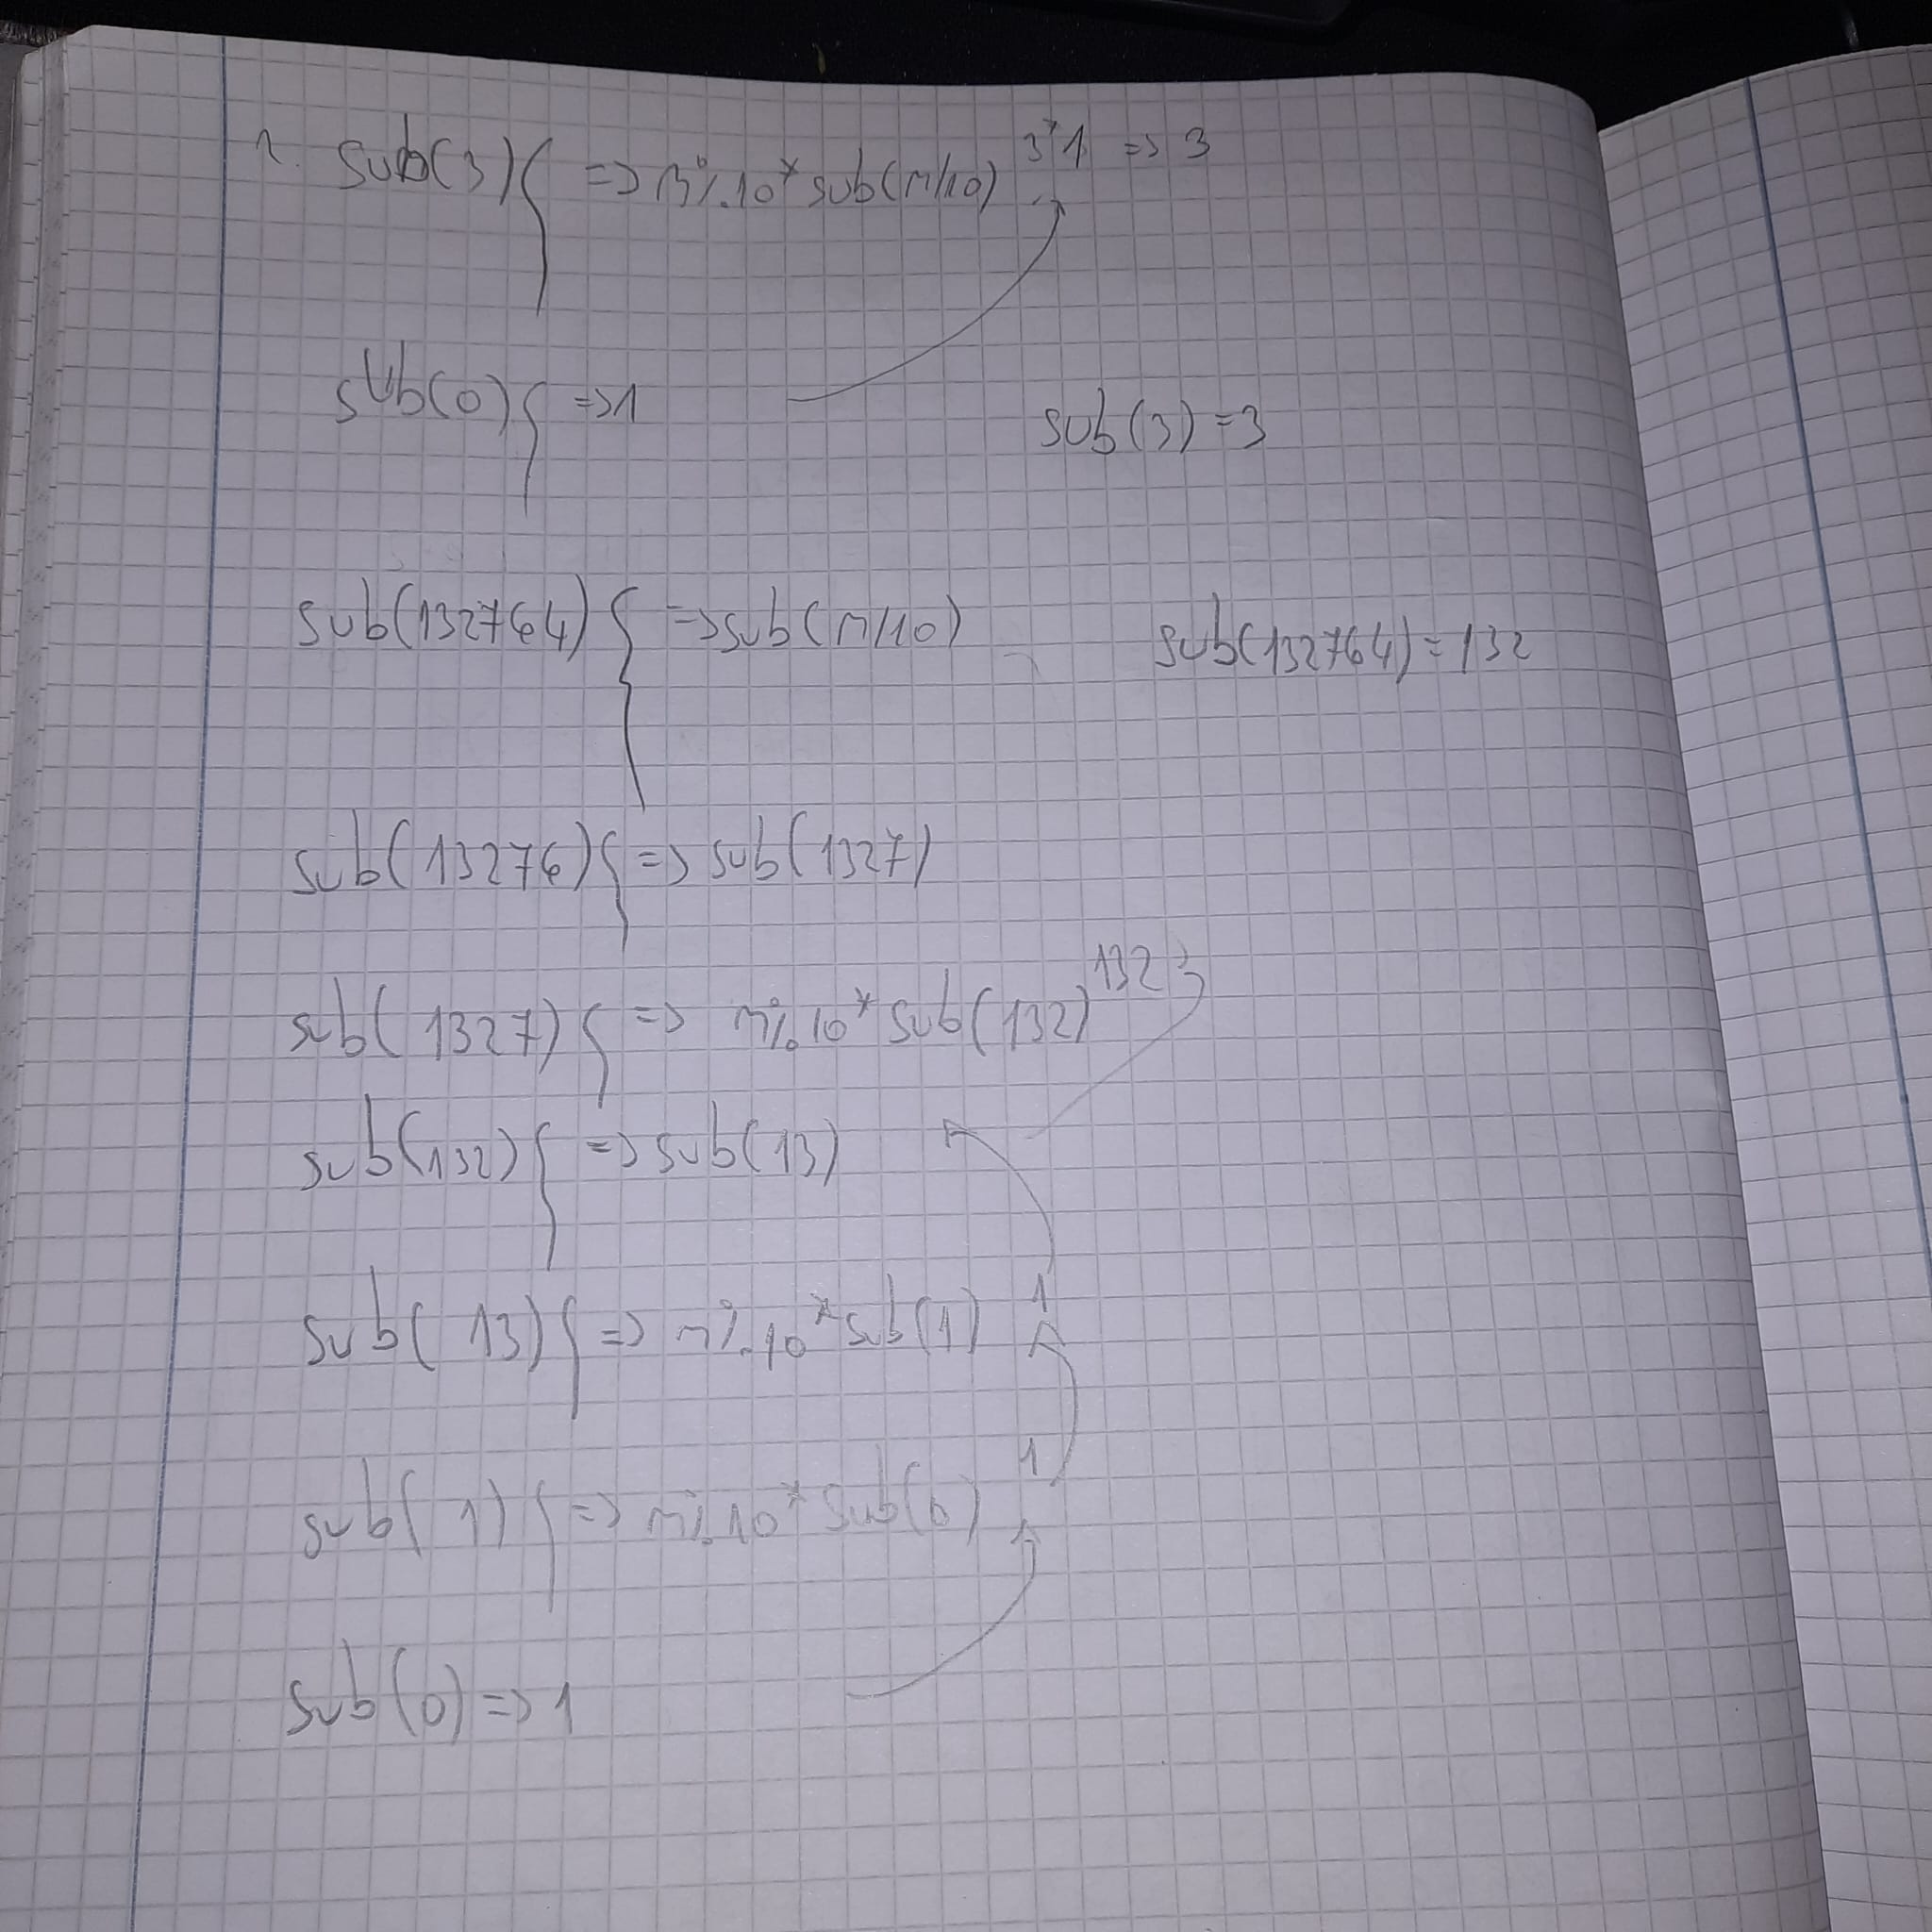 2. sub(3){ => n%10*sub(n/10) 3*1 => 3
sub(0){ => 1
sub(3)=3
sub(132764){ => sub(n/10)
sub(132764)=132
sub(13276){ => sub(1327)
sub(1327){ => n%10*sub(132) 132
sub(132){ => sub(13)
sub(13){ => n%10*sub(1) 1
sub(1){ => n%10*sub(0) 1
sub(0) => 1